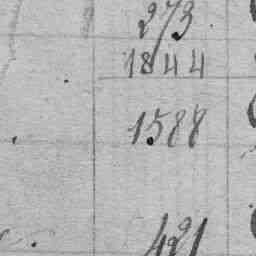 273.
1844
1588
421